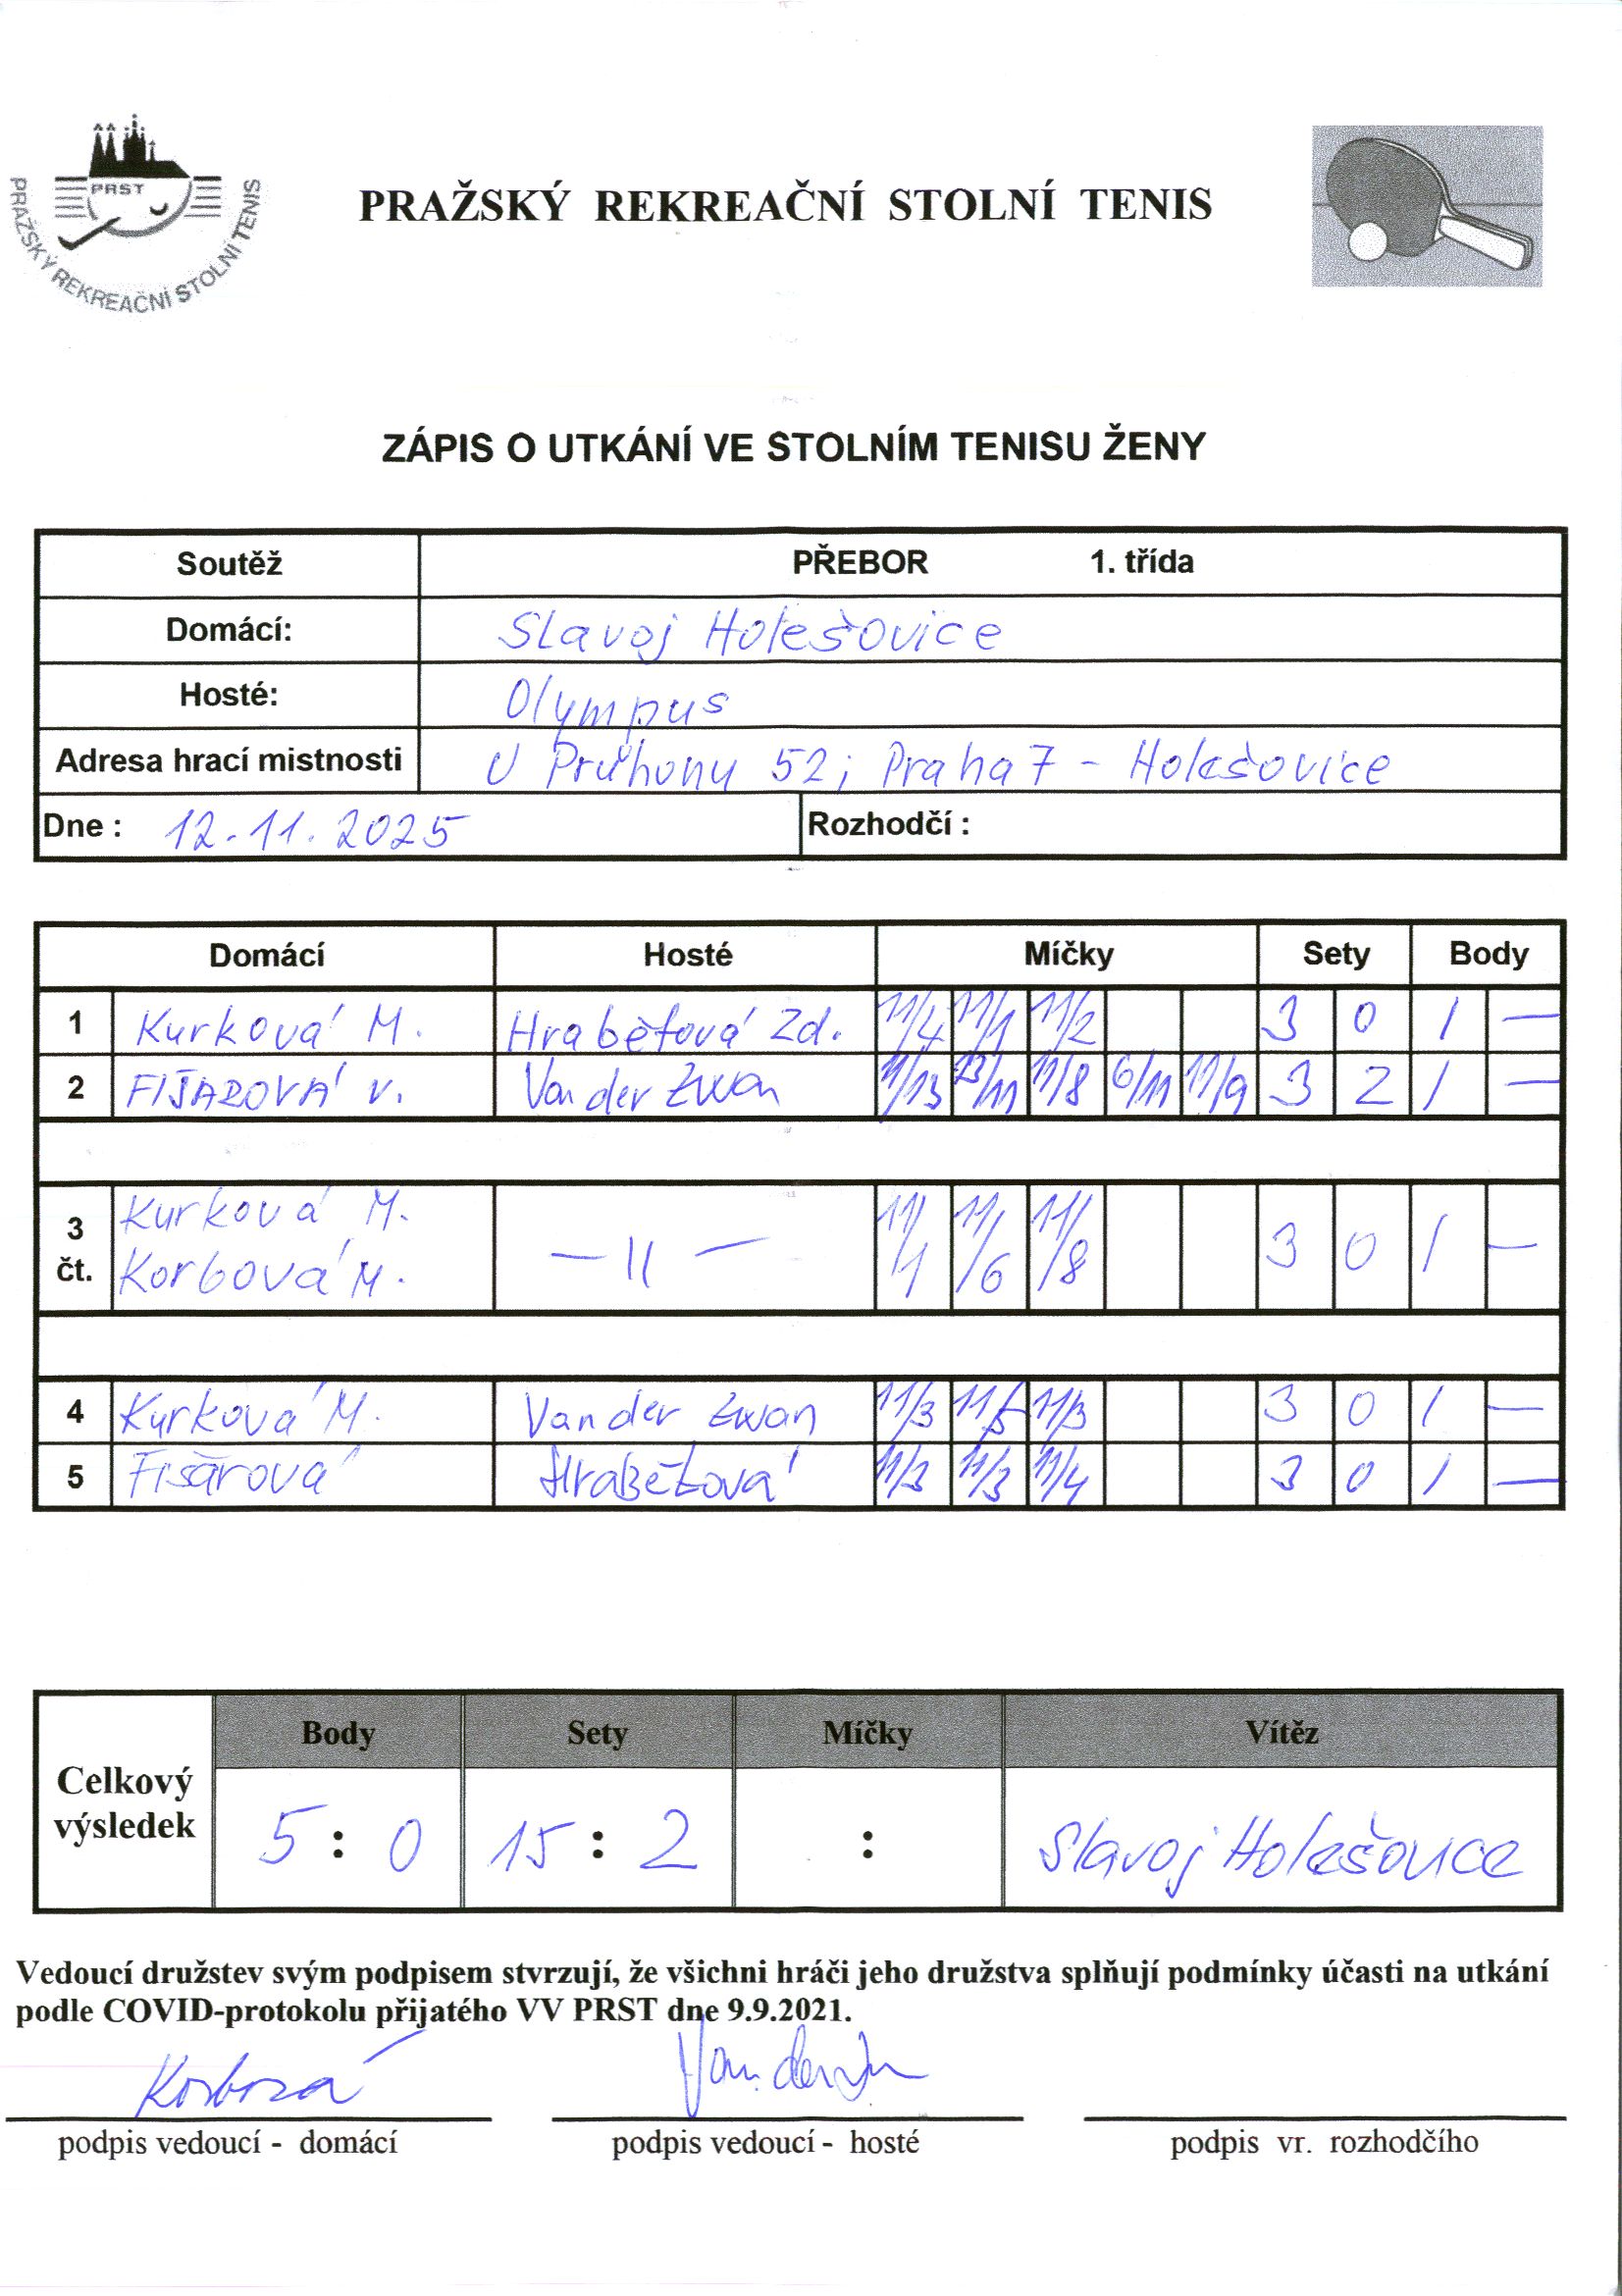 PRST
PRAŽSKÝ REKREAČNÍ STOLNÍ TENIS
PRAŽSKÝ REKREAČNÍ STOLNÍ TENIS
ZÁPIS O UTKÁNÍ VE STOLNÍM TENISU ŽENY
Soutěž PŘEBOR 1. třída
Domácí: Slavoj Holešovice
Hosté: Olympus
Adresa hrací mistnosti U Průhonu 52; Praha 7 - Holešovice
Dne : 12.11.2025 Rozhodčí :
Domácí Hosté Míčky Sety Body
1 Kurková M. Hrabětová Zd. 11/4 11/1 11/2 3 0 1 —
2 FIŠAROVÁ V. Van der Zwan 11/13 13/11 11/8 6/11 11/9 3 2 1 —
3 čt. Kurková M. Korbová M. — II — 11/1 11/6 11/8 3 0 1 —
4 Kurková M. Van der Zwan 11/3 11/5 11/3 3 0 1 —
5 Fišárová Hrabětová 11/3 11/3 11/4 3 0 1 —
Celkový výsledek
Body Sety Míčky Vítěz
5 : 0 15 : 2 : Slavoj Holešovice
Vedoucí družstev svým podpisem stvrzují, že všichni hráči jeho družstva splňují podmínky účasti na utkání
podle COVID-protokolu přijatého VV PRST dne 9.9.2021.
Korbová
podpis vedoucí - domácí podpis vedoucí - hosté podpis vr. rozhodčího